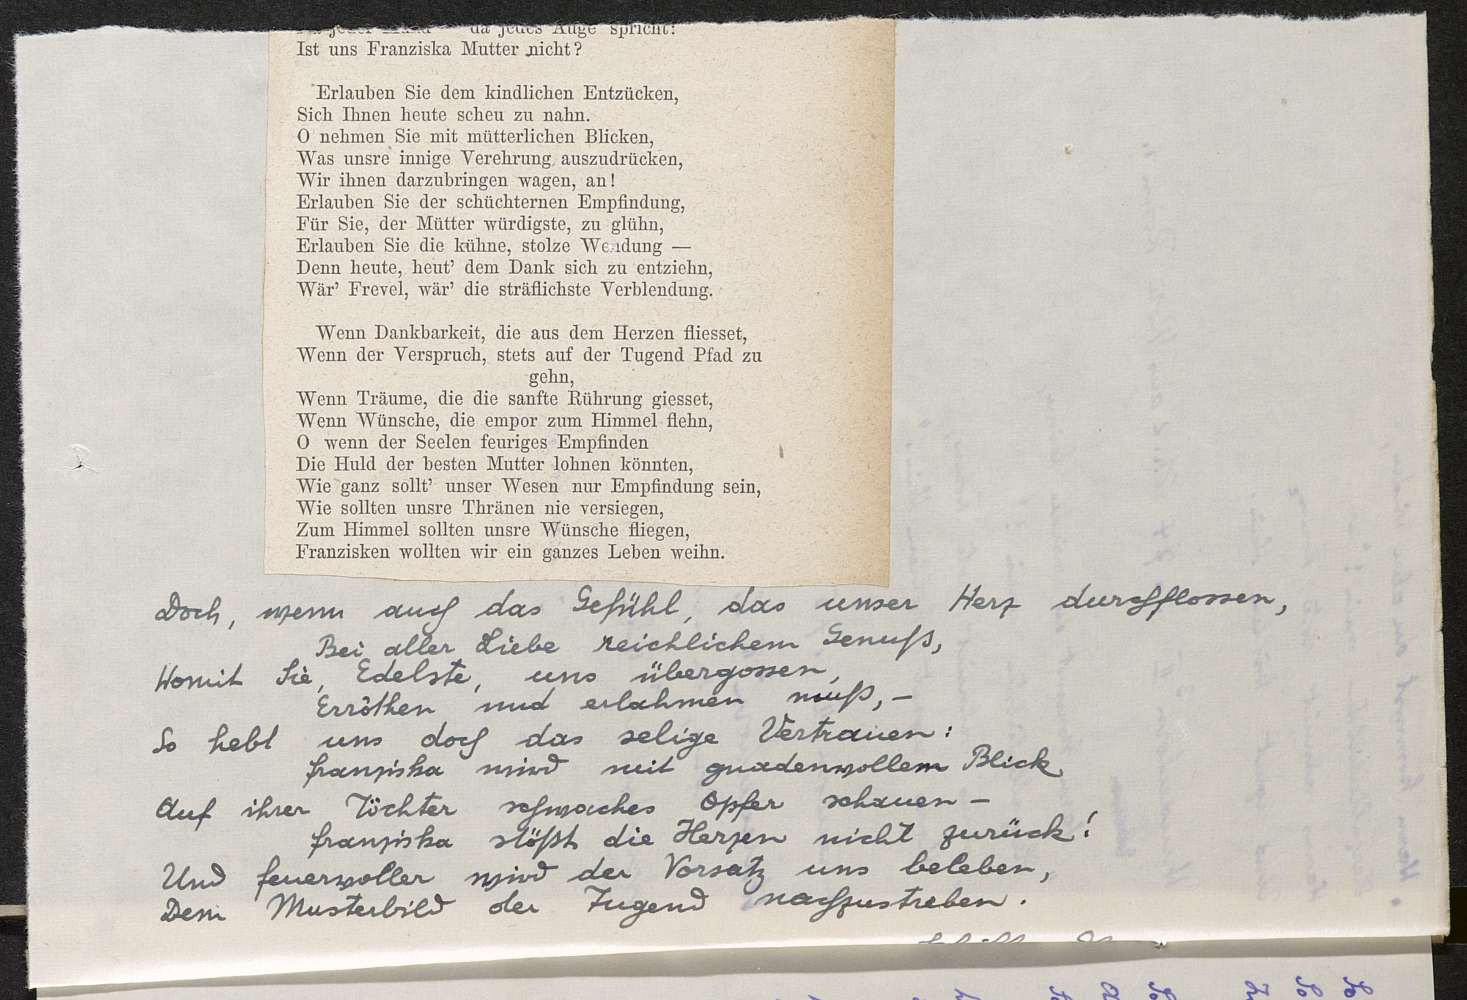 da jedes Auge spricht!
Ist uns Franziska Mutter nicht?
Erlauben Sie dem kindlichen Entzücken,
Sich Ihnen heute scheu zu nahn.
O nehmen Sie mit mütterlichen Blicken,
Was unsre innige Verehrung auszudrücken,
Wir ihnen darzubringen wagen, an!
Erlauben Sie der schüchternen Empfindung,
Für Sie, der Mütter würdigste, zu glühn,
Erlauben Sie die kühne, stolze Wendung —
Denn heute, heut' dem Dank sich zu entziehn,
Wär' Frevel, wär' die sträflichste Verblendung.
Wenn Dankbarkeit, die aus dem Herzen fliesset,
Wenn der Verspruch, stets auf der Tugend Pfad zu
gehn,
Wenn Träume, die die sanfte Rührung giesset,
Wenn Wünsche, die empor zum Himmel flehn,
O wenn der Seelen feuriges Empfinden
Die Huld der besten Mutter lohnen könnten,
Wie ganz sollt' unser Wesen nur Empfindung sein,
Wie sollten unsre Thränen nie versiegen,
Zum Himmel sollten unsre Wünsche fliegen,
Franzisken wollten wir ein ganzes Leben weihn.
Doch, wenn auch das Gefühl, das unser Herz durchflossen,
Bei aller Liebe reichlichem Genuß,
Womit Sie, Edelste, uns übergossen,
Erröthen und erlahmen muß, –
So hebt uns doch das selige Vertrauen:
Franziska wird mit gnadenvollem Blick
Auf ihrer Töchter schwaches Opfer schauen –
Franziska stößt die Herzen nicht zurück!
Und feuervoller wird der Vorsatz uns beleben,
Dem Musterbild der Tugend nachzustreben.